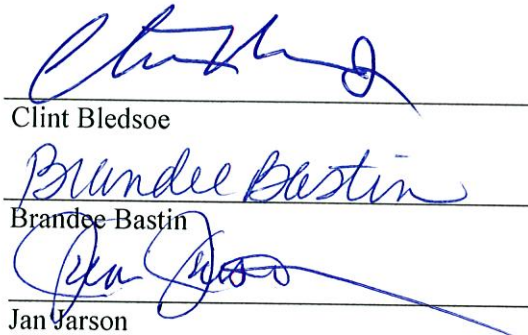 Clint Bledsoe
Brandee Bastin
Brandee Bastin
Jan Jarson